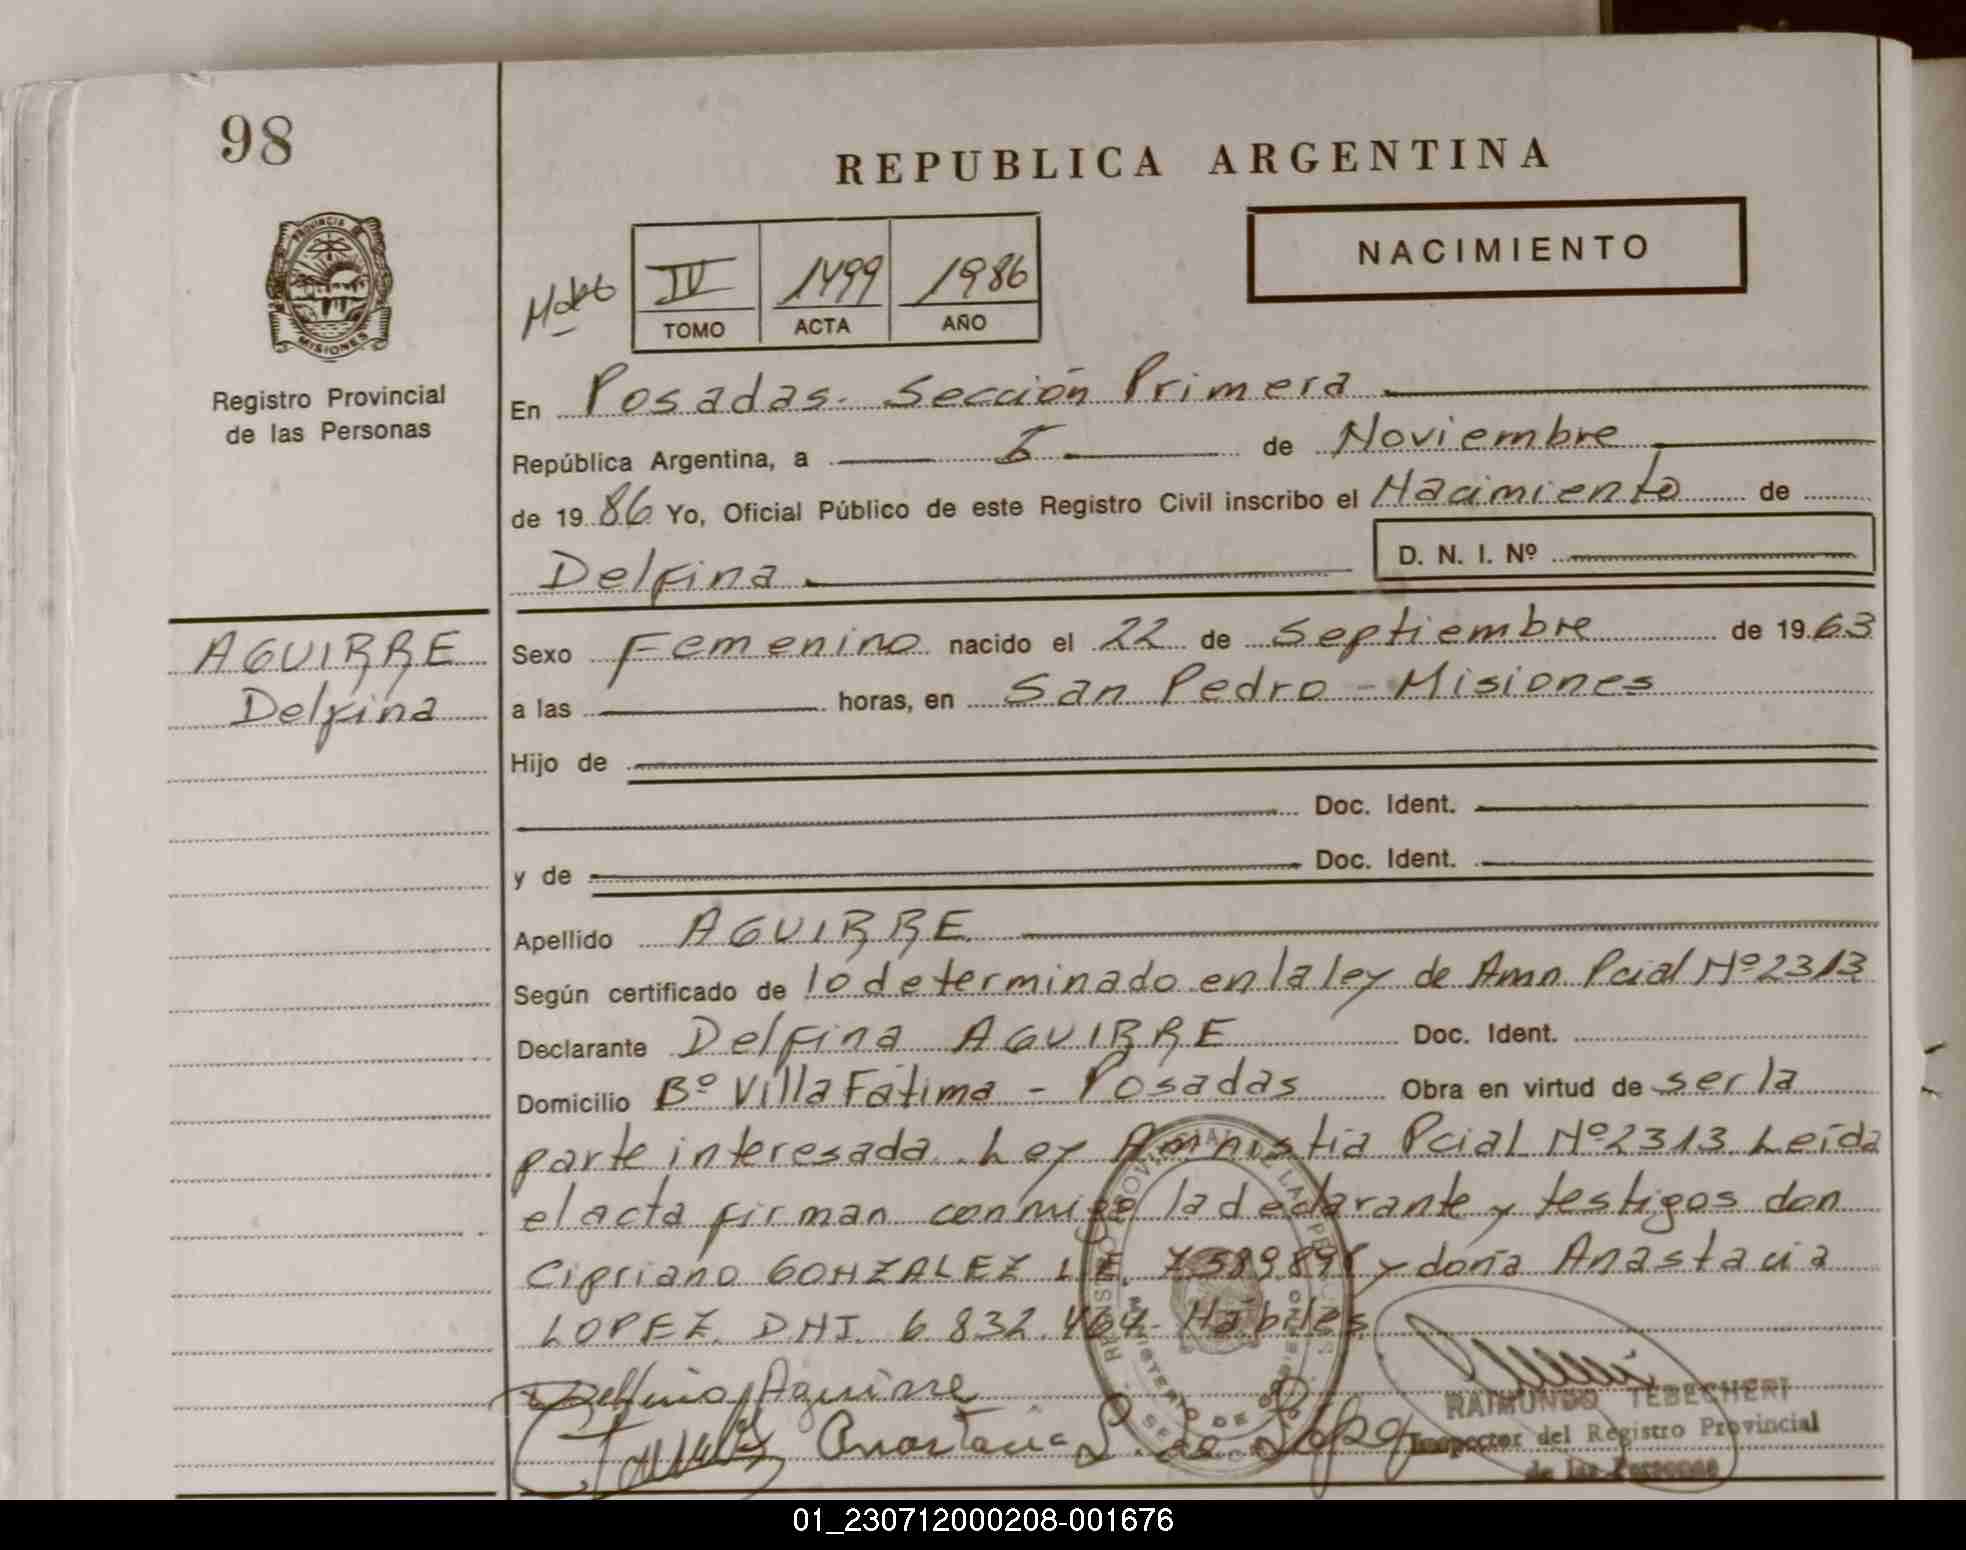 98
REPUBLICA ARGENTINA
NACIMIENTO
PROVINCIA DE
MISIONES
Registro Provincial
de las Personas
IV 1499 1986
TOMO ACTA AÑO
En Posadas. Sección Primera
República Argentina, a de Noviembre
de 19 86 Yo, Oficial Público de este Registro Civil inscribo el Nacimiento de
Delfina D. N. I. Nº
AGUIRRE
Delfina
Sexo Femenino nacido el 22 de Septiembre de 19 63
a las horas, en San Pedro - Misiones
Hijo de
Doc. Ident.
y de Doc. Ident.
Apellido AGUIRRE
Según certificado de lo determinado en la ley de Amn. Pcial Nº 2313
Declarante Delfina AGUIRRE Doc. Ident.
Domicilio Bº Villa Fátima - Posadas Obra en virtud de ser la
parte interesada. Ley Amnistía Pcial Nº 2313. Leída
el acta firman conmigo la declarante y testigos don
Cipriano GONZALEZ L.E. y doña Anastacia
LOPEZ DNI. 6.832.464. Hábiles
Delfina Aguirre
Anastacia L. de
RAIMUNDO TEBECHERI
Inspector del Registro Provincial
de las Personas
01_230712000208-001676